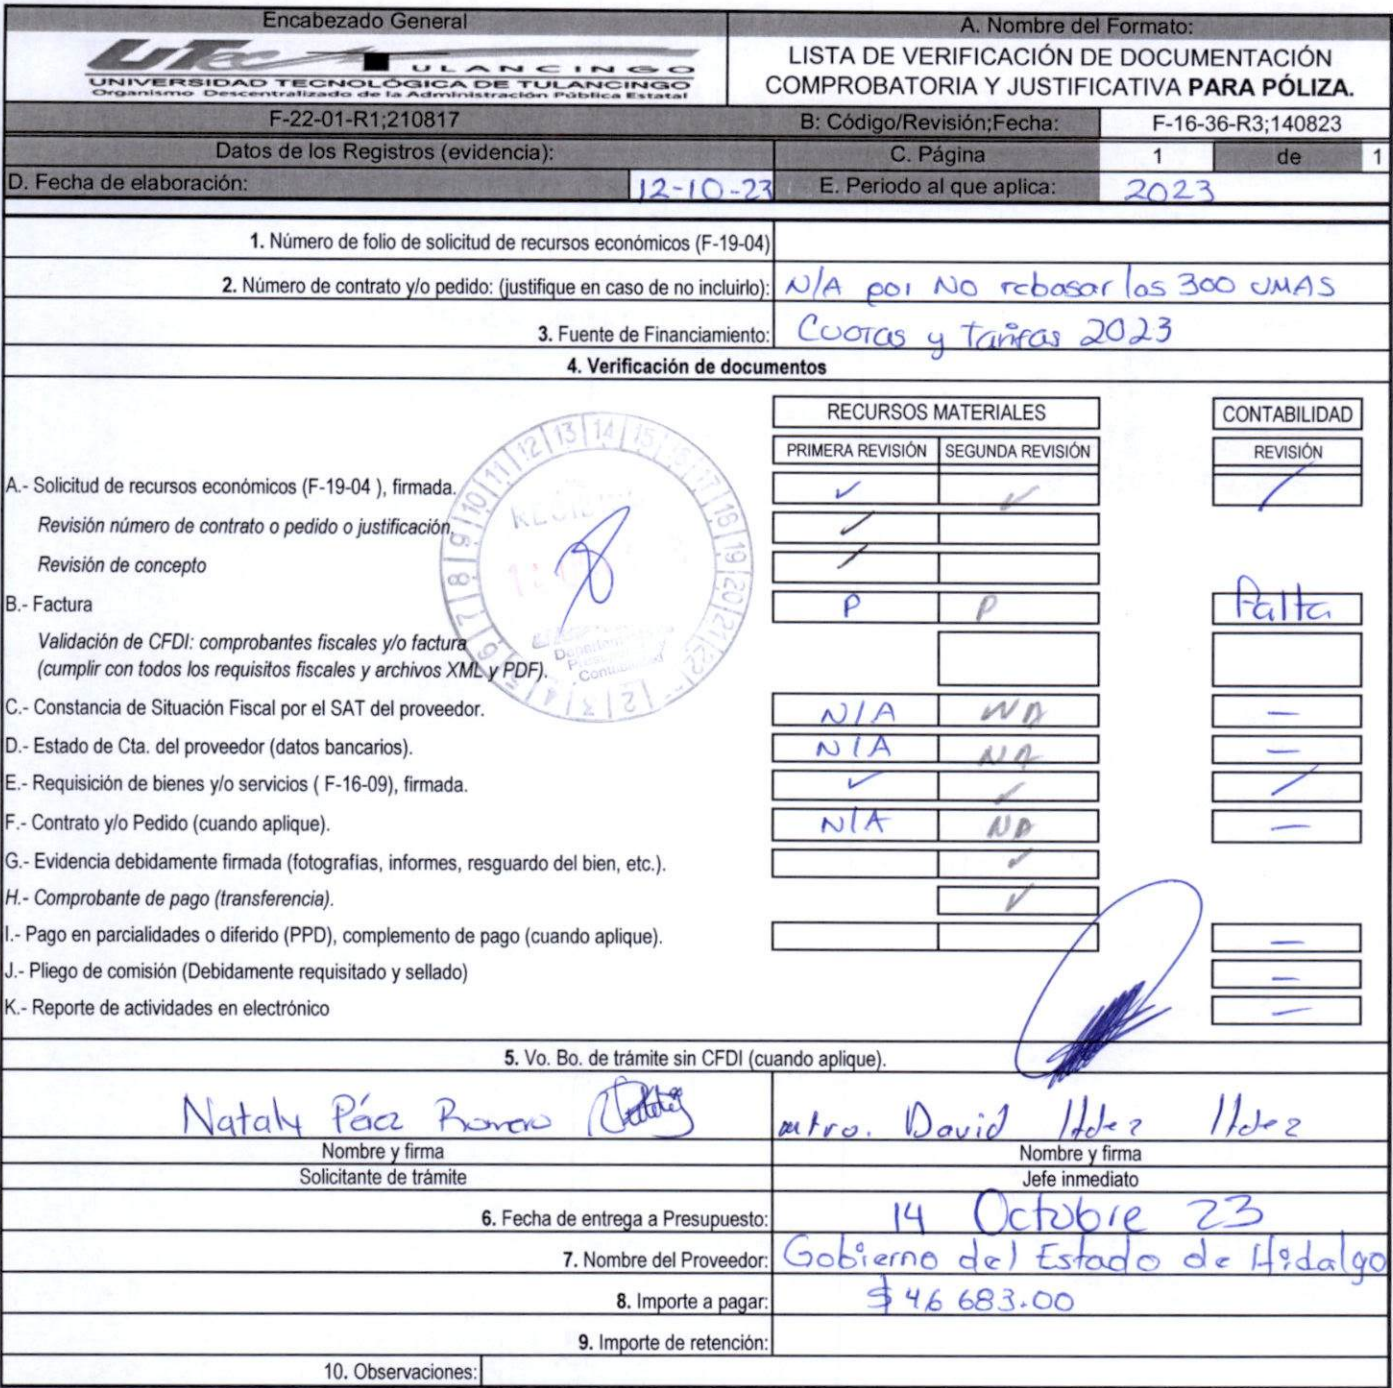 Encabezado General
A. Nombre del Formato:
UTec TULANCINGO
UNIVERSIDAD TECNOLÓGICA DE TULANCINGO
Organismo Descentralizado de la Administración Pública Estatal
LISTA DE VERIFICACIÓN DE DOCUMENTACIÓN
COMPROBATORIA Y JUSTIFICATIVA PARA PÓLIZA.
F-22-01-R1;210817
B: Código/Revisión;Fecha: F-16-36-R3;140823
Datos de los Registros (evidencia): C. Página 1 de 1
D. Fecha de elaboración: 12-10-23 E. Periodo al que aplica: 2023
1. Número de folio de solicitud de recursos económicos (F-19-04)
2. Número de contrato y/o pedido: (justifique en caso de no incluirlo): N/A por No rebasar las 300 UMAS
3. Fuente de Financiamiento: Cuotas y Tarifas 2023
4. Verificación de documentos
RECURSOS MATERIALES CONTABILIDAD
PRIMERA REVISIÓN SEGUNDA REVISIÓN REVISIÓN
A.- Solicitud de recursos económicos (F-19-04 ), firmada. ✓ ✓ /
Revisión número de contrato o pedido o justificación. ✓
Revisión de concepto ✓
B.- Factura P P Falta
Validación de CFDI: comprobantes fiscales y/o factura
(cumplir con todos los requisitos fiscales y archivos XML y PDF).
C.- Constancia de Situación Fiscal por el SAT del proveedor. N/A NA —
D.- Estado de Cta. del proveedor (datos bancarios). N/A NA —
E.- Requisición de bienes y/o servicios ( F-16-09), firmada. ✓ ✓ /
F.- Contrato y/o Pedido (cuando aplique). N/A NA —
G.- Evidencia debidamente firmada (fotografías, informes, resguardo del bien, etc.). ✓
H.- Comprobante de pago (transferencia). ✓
I.- Pago en parcialidades o diferido (PPD), complemento de pago (cuando aplique). —
J.- Pliego de comisión (Debidamente requisitado y sellado) —
K.- Reporte de actividades en electrónico —
5. Vo. Bo. de trámite sin CFDI (cuando aplique).
Nataly Páez Romero mtro. David Hdez Hdez
Nombre y firma Nombre y firma
Solicitante de trámite Jefe inmediato
6. Fecha de entrega a Presupuesto: 14 Octubre 23
7. Nombre del Proveedor: Gobierno del Estado de Hidalgo
8. Importe a pagar: $ 46 683.00
9. Importe de retención:
10. Observaciones: